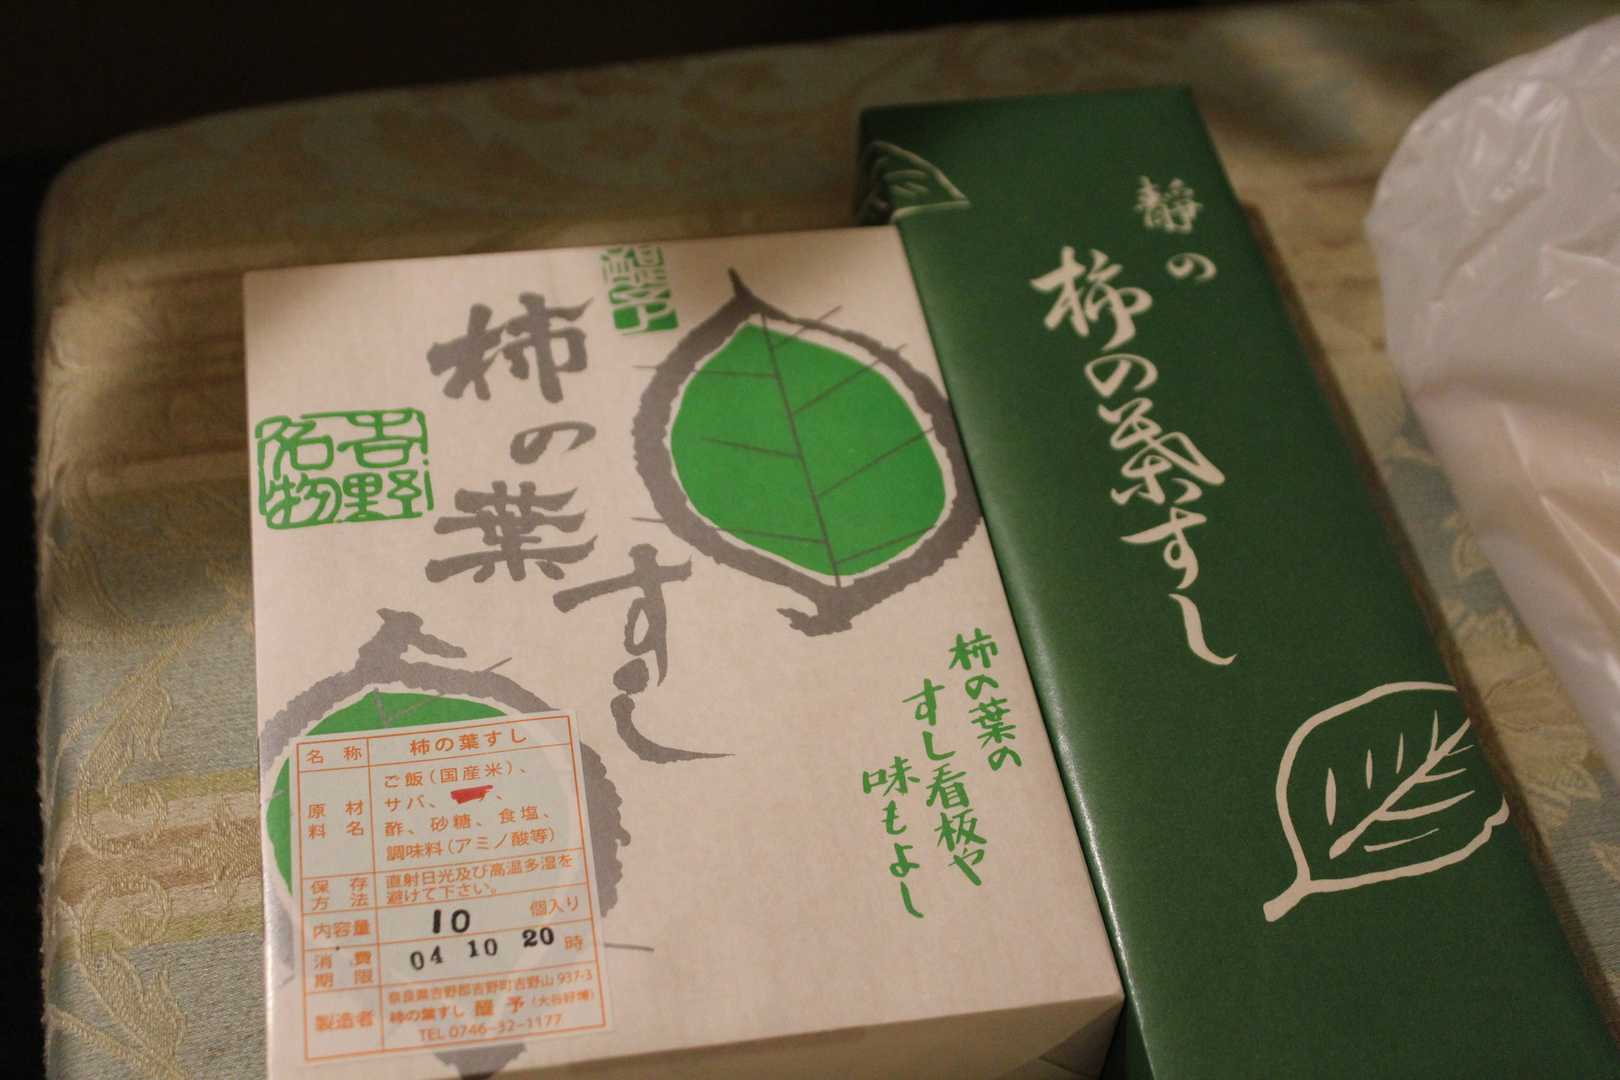 醍予
柿の葉すし
吉野
名物
柿の葉の
すし看板や
味もよし
名称 柿の葉すし
原材料名 ご飯(国産米)、
サバ、
酢、砂糖、食塩、
調味料(アミノ酸等)
保存方法 直射日光及び高温多湿を
避けて下さい。
内容量 10 個入り
消費期限 04 10 20 時
製造者 奈良県吉野郡吉野町吉野山937-3
柿の葉すし 醍予(大谷好博)
TEL 0746-32-1177
静の
柿の葉すし